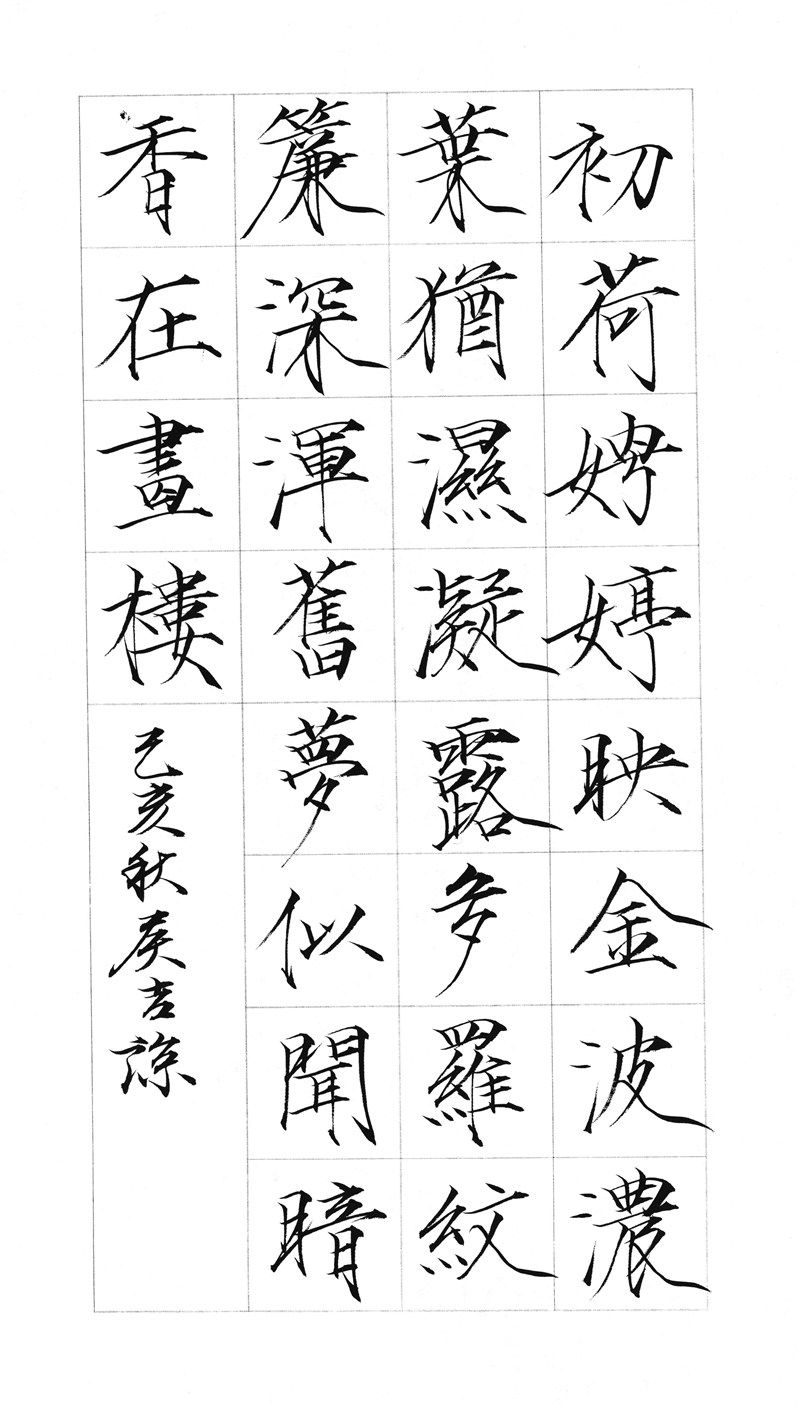 初荷娉婷映金波濃
葉猶濕凝露多羅紋
簾深渾舊夢似聞暗
香在畫樓
己亥秋侯吉諒